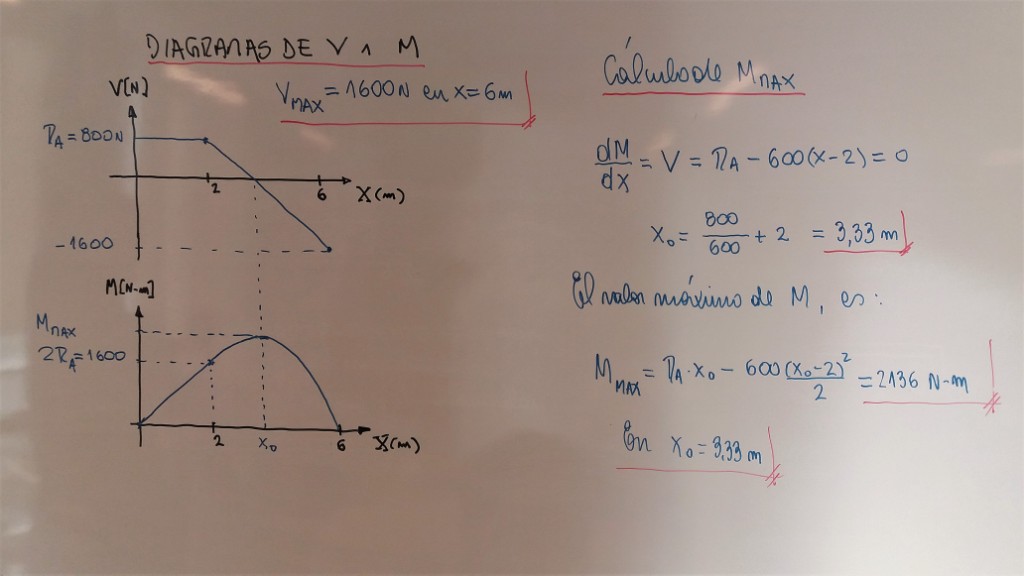 DIAGRAMAS DE V ∧ M
V[N]
V_MAX = 1600 N en x = 6m
R_A = 800N
2
6
X(m)
-1600
M[N-m]
M_MAX
2R_A = 1600
2
x_0
6
X(m)
Cálculo de M_MAX
dM/dx = V = R_A - 600(x-2) = 0
x_0 = 800/600 + 2 = 3,33 m
El valor máximo de M, es:
M_MAX = R_A · x_0 - 600 (x_0-2)²/2 = 2136 N-m
En x_0 = 3,33 m